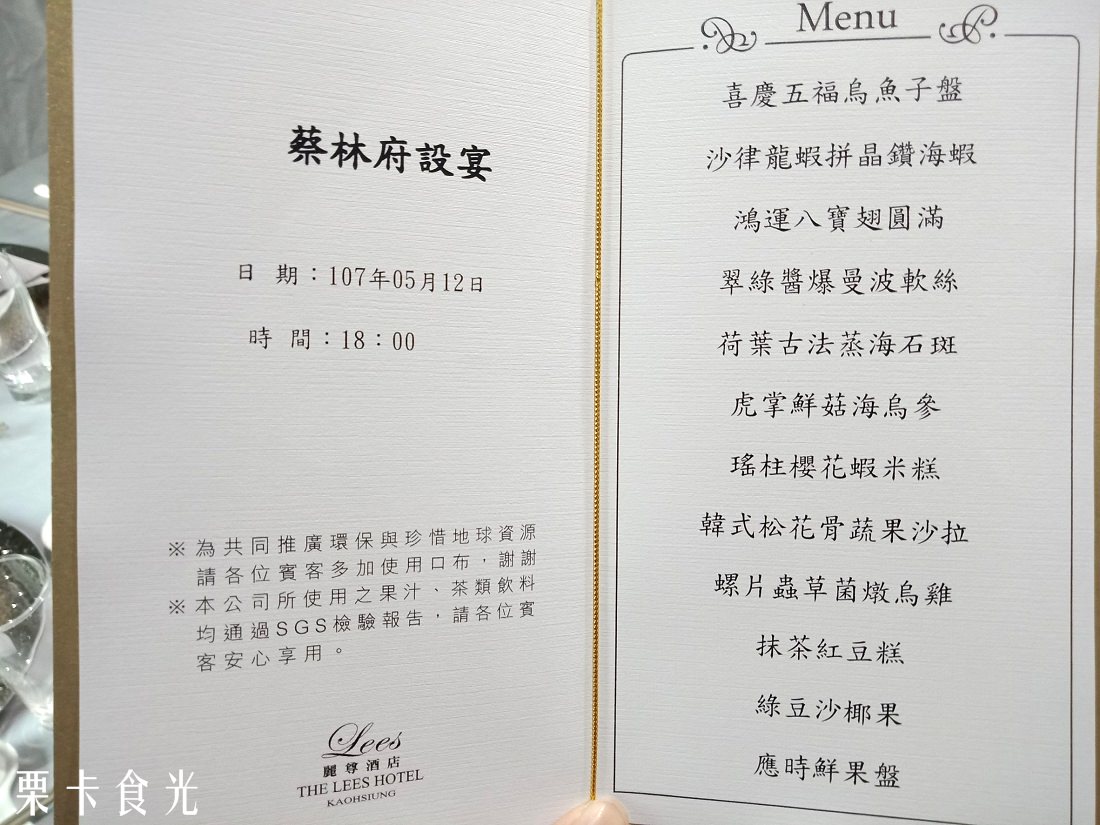 蔡林府設宴
日 期：107年05月12日
時 間：18：00
※為共同推廣環保與珍惜地球資源
請各位賓客多加使用口布，謝謝
※本公司所使用之果汁、茶類飲料
均通過SGS檢驗報告，請各位賓
客安心享用。
Lees
麗尊酒店
THE LEES HOTEL
KAOHSIUNG
Menu
喜慶五福烏魚子盤
沙律龍蝦拼晶鑽海蝦
鴻運八寶翅圓滿
翠綠醬爆曼波軟絲
荷葉古法蒸海石斑
虎掌鮮菇海烏參
瑤柱櫻花蝦米糕
韓式松花骨蔬果沙拉
螺片蟲草菌燉烏雞
抹茶紅豆糕
綠豆沙椰果
應時鮮果盤
栗卡食光